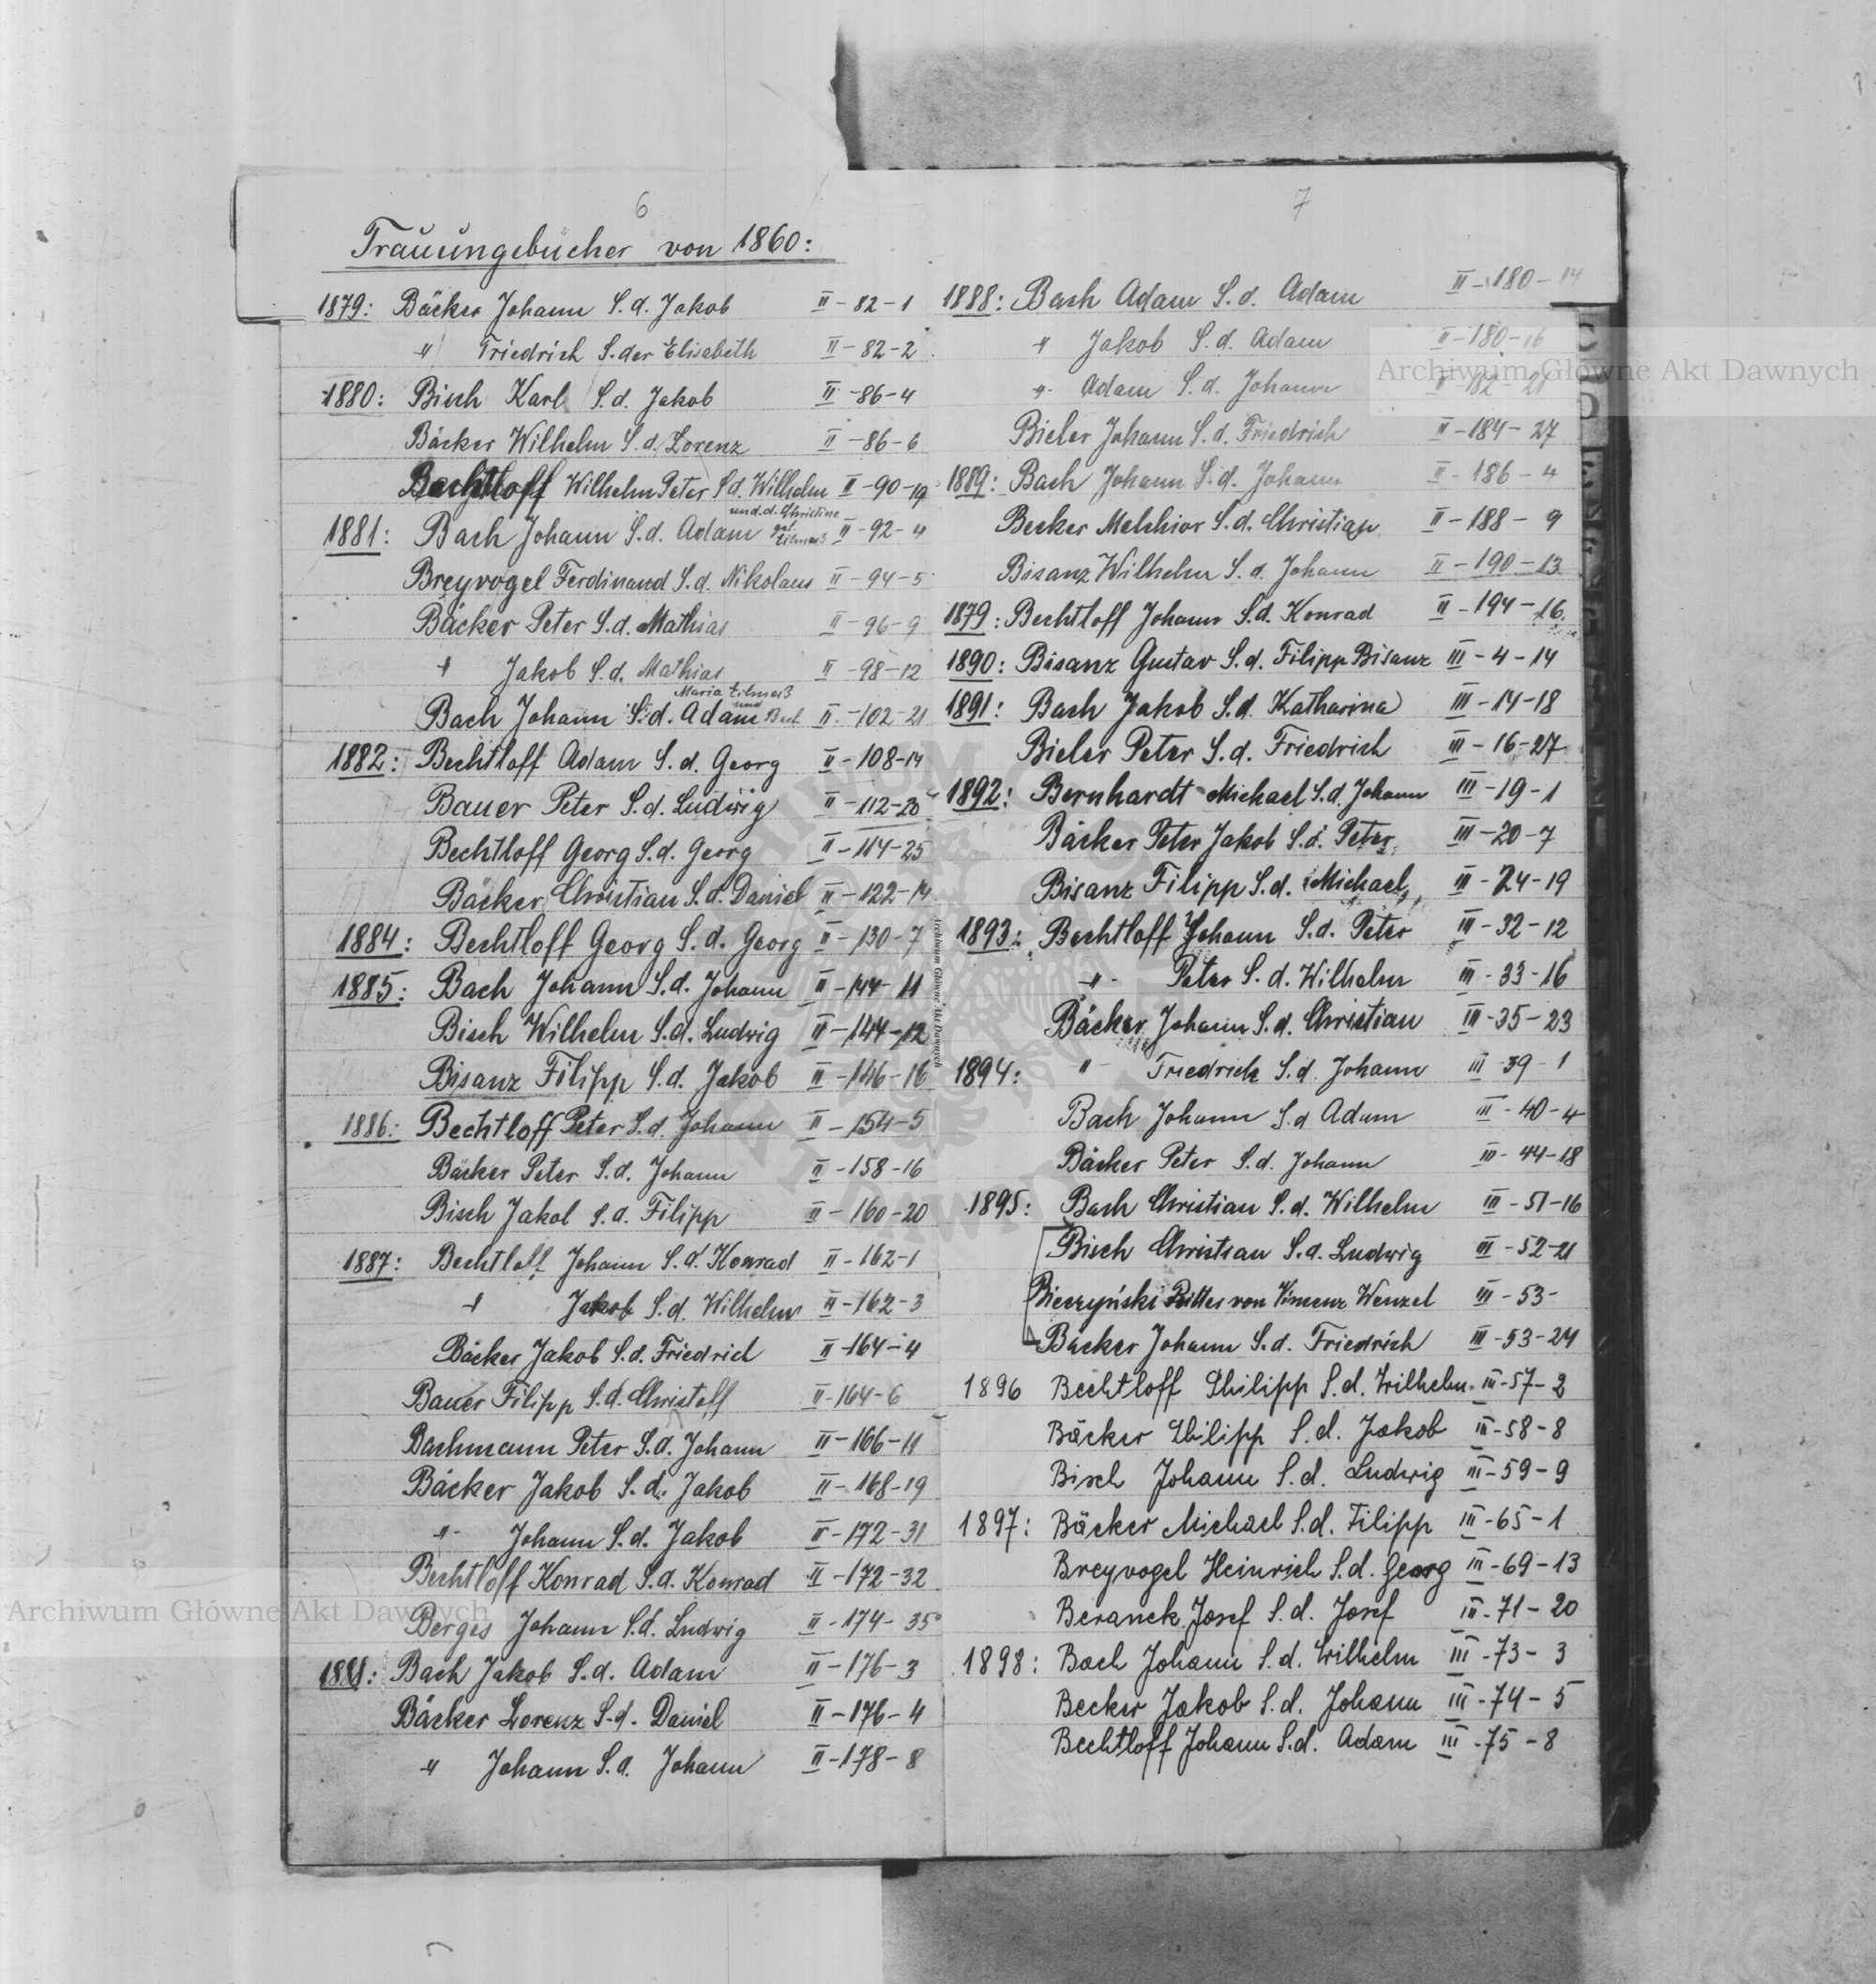 6
Trauungsbücher von 1860:
1879: Bäcker Johann S.d. Jakob II-82-1
" Friedrich S.der Elisabeth II-82-2
1880: Bisch Karl S.d. Jakob II-86-4
Bäcker Wilhelm S.d. Lorenz II-86-6
Bechtloff Wilhelm Peter S.d. Wilhelm II-90-19
und.d. Christine
1881: Bach Johann S.d. Adam II-92-4
Breyvogel Ferdinand S.d. Nikolaus II-94-5
Bäcker Peter S.d. Mathias II-96-9
" Jakob S.d. Mathias II-98-12
Maria
und
Bach Johann S.d. Adam Bach II-102-21
1882: Bechtloff Adam S.d. Georg II-108-14
Bauer Peter S.d. Ludwig II-112-20
Bechtloff Georg S.d. Georg II-114-25
Bäcker Christian S.d. Daniel II-122-14
1884: Bechtloff Georg S.d. Georg II-130-7
1885: Bach Johann S.d. Johann II-144-11
Bisch Wilhelm S.d. Ludwig II-144-12
Bisanz Filipp S.d. Jakob II-146-16
1886: Bechtloff Peter S.d. Johann II-154-5
Bäcker Peter S.d. Johann II-158-16
Bisch Jakob S.d. Filipp II-160-20
1887: Bechtloff Johann S.d. Konrad II-162-1
" Jakob S.d. Wilhelm II-162-3
Bäcker Jakob S.d. Friedrich II-164-4
Bauer Filipp S.d. Christoff II-164-6
Bachmann Peter S.d. Johann II-166-11
Bäcker Jakob S.d. Jakob II-168-19
" Johann S.d. Jakob II-172-31
Bechtloff Konrad S.d. Konrad II-172-32
Berges Johann S.d. Ludwig II-174-35
1888: Bach Jakob S.d. Adam II-176-3
Bäcker Lorenz S.d. Daniel II-176-4
" Johann S.d. Johann II-178-8
7
1888: Bach Adam S.d. Adam II-180-14
" Jakob S.d. Adam II-180-16
" Adam S.d. Johann II-182-21
Bieler Johann S.d. Friedrich II-184-27
1889: Bach Johann S.d. Johann II-186-4
Becker Melchior S.d. Christian II-188-9
Bisanz Wilhelm S.d. Johann II-190-13
1879: Bechtloff Johann S.d. Konrad II-194-16
1890: Bisanz Gustav S.d. Filipp Bisanz III-4-14
1891: Bach Jakob S.d. Katharina III-14-18
Bieler Peter S.d. Friedrich III-16-27
1892: Bernhardt Michael S.d. Johann III-19-1
Bäcker Peter Jakob S.d. Peter III-20-7
Bisanz Filipp S.d. Michael III-24-19
1893: Bechtloff Johann S.d. Peter III-32-12
" Peter S.d. Wilhelm III-33-16
Bäcker Johann S.d. Christian III-35-23
1894: " Friedrich S.d. Johann III-39-1
Bach Johann S.d Adam III-40-4
Bäcker Peter S.d. Johann III-44-18
1895: Bach Christian S.d. Wilhelm III-51-16
Bisch Christian S.d. Ludwig III-52-21
Bieczyński Ritter von Vinzenz Wenzel III-53-
Bäcker Johann S.d. Friedrich III-53-24
1896 Bechtloff Philipp S.d. Wilhelm III-57-2
Bäcker Philipp S.d. Jakob III-58-8
Bisch Johann S.d. Ludwig III-59-9
1897: Bäcker Michael S.d. Filipp III-65-1
Breyvogel Heinrich S.d. Georg III-69-13
Beranek Josef S.d. Josef III-71-20
1898: Bach Johann S.d. Wilhelm III-73-3
Becker Jakob S.d. Johann III-74-5
Bechtloff Johann S.d. Adam III-75-8
Archiwum Główne Akt Dawnych
Archiwum Główne Akt Dawnych
Archiwum Główne Akt Dawnych